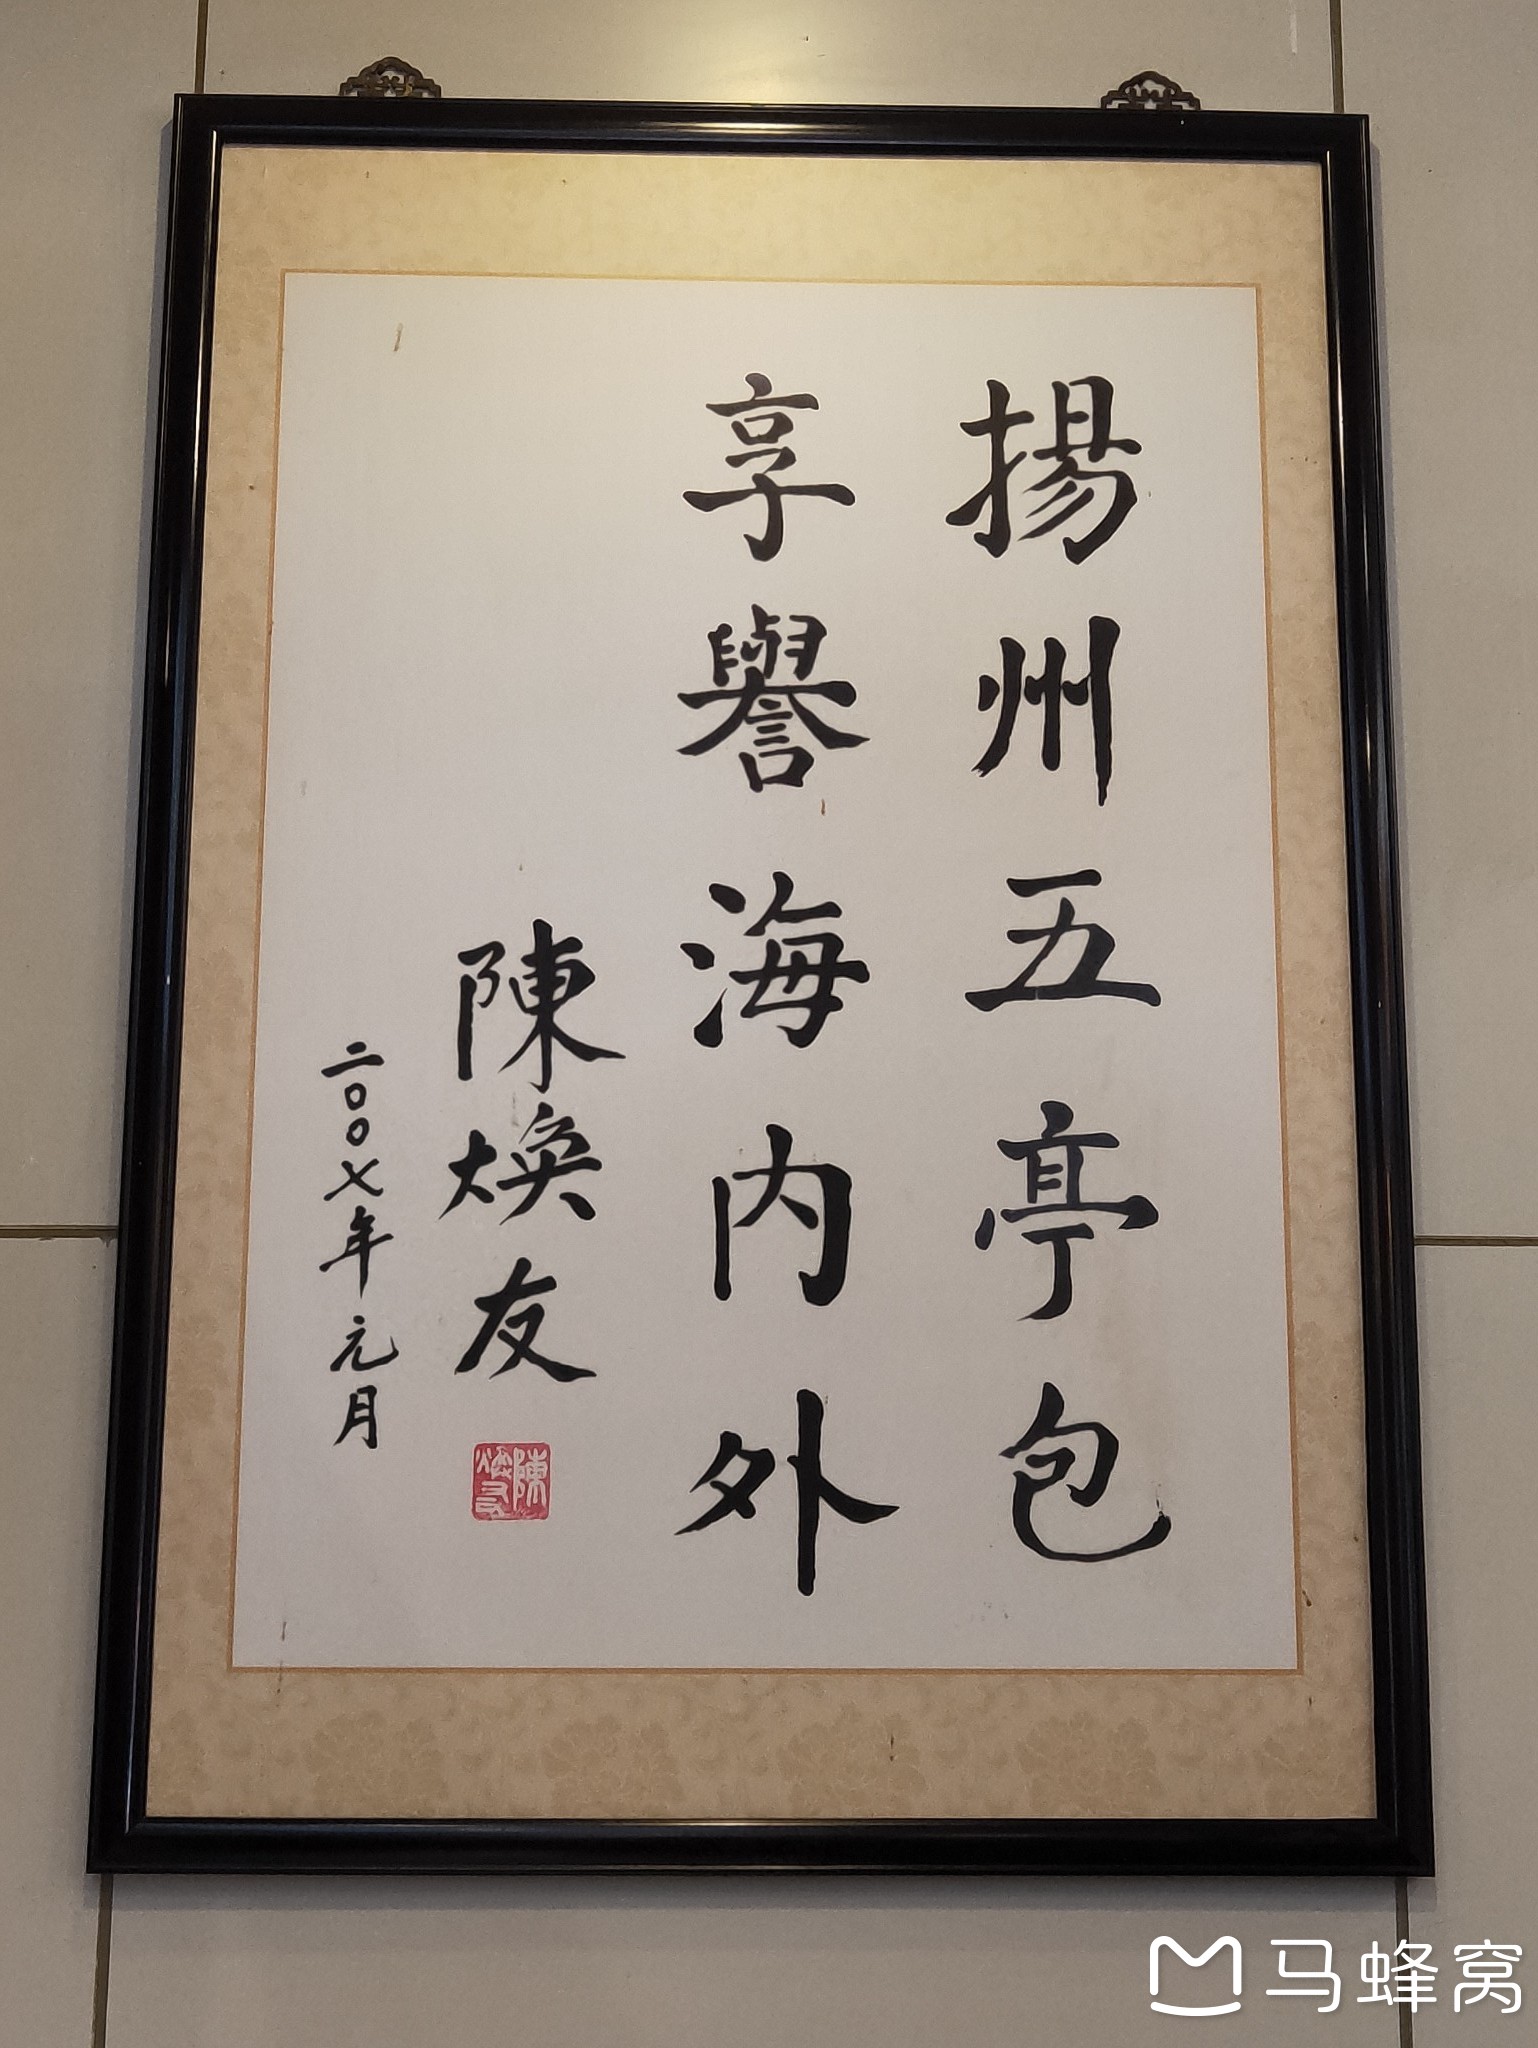 揚州五亭包
享譽海內外
陳煥友
二〇〇七年元月
陳煥友
马蜂窝